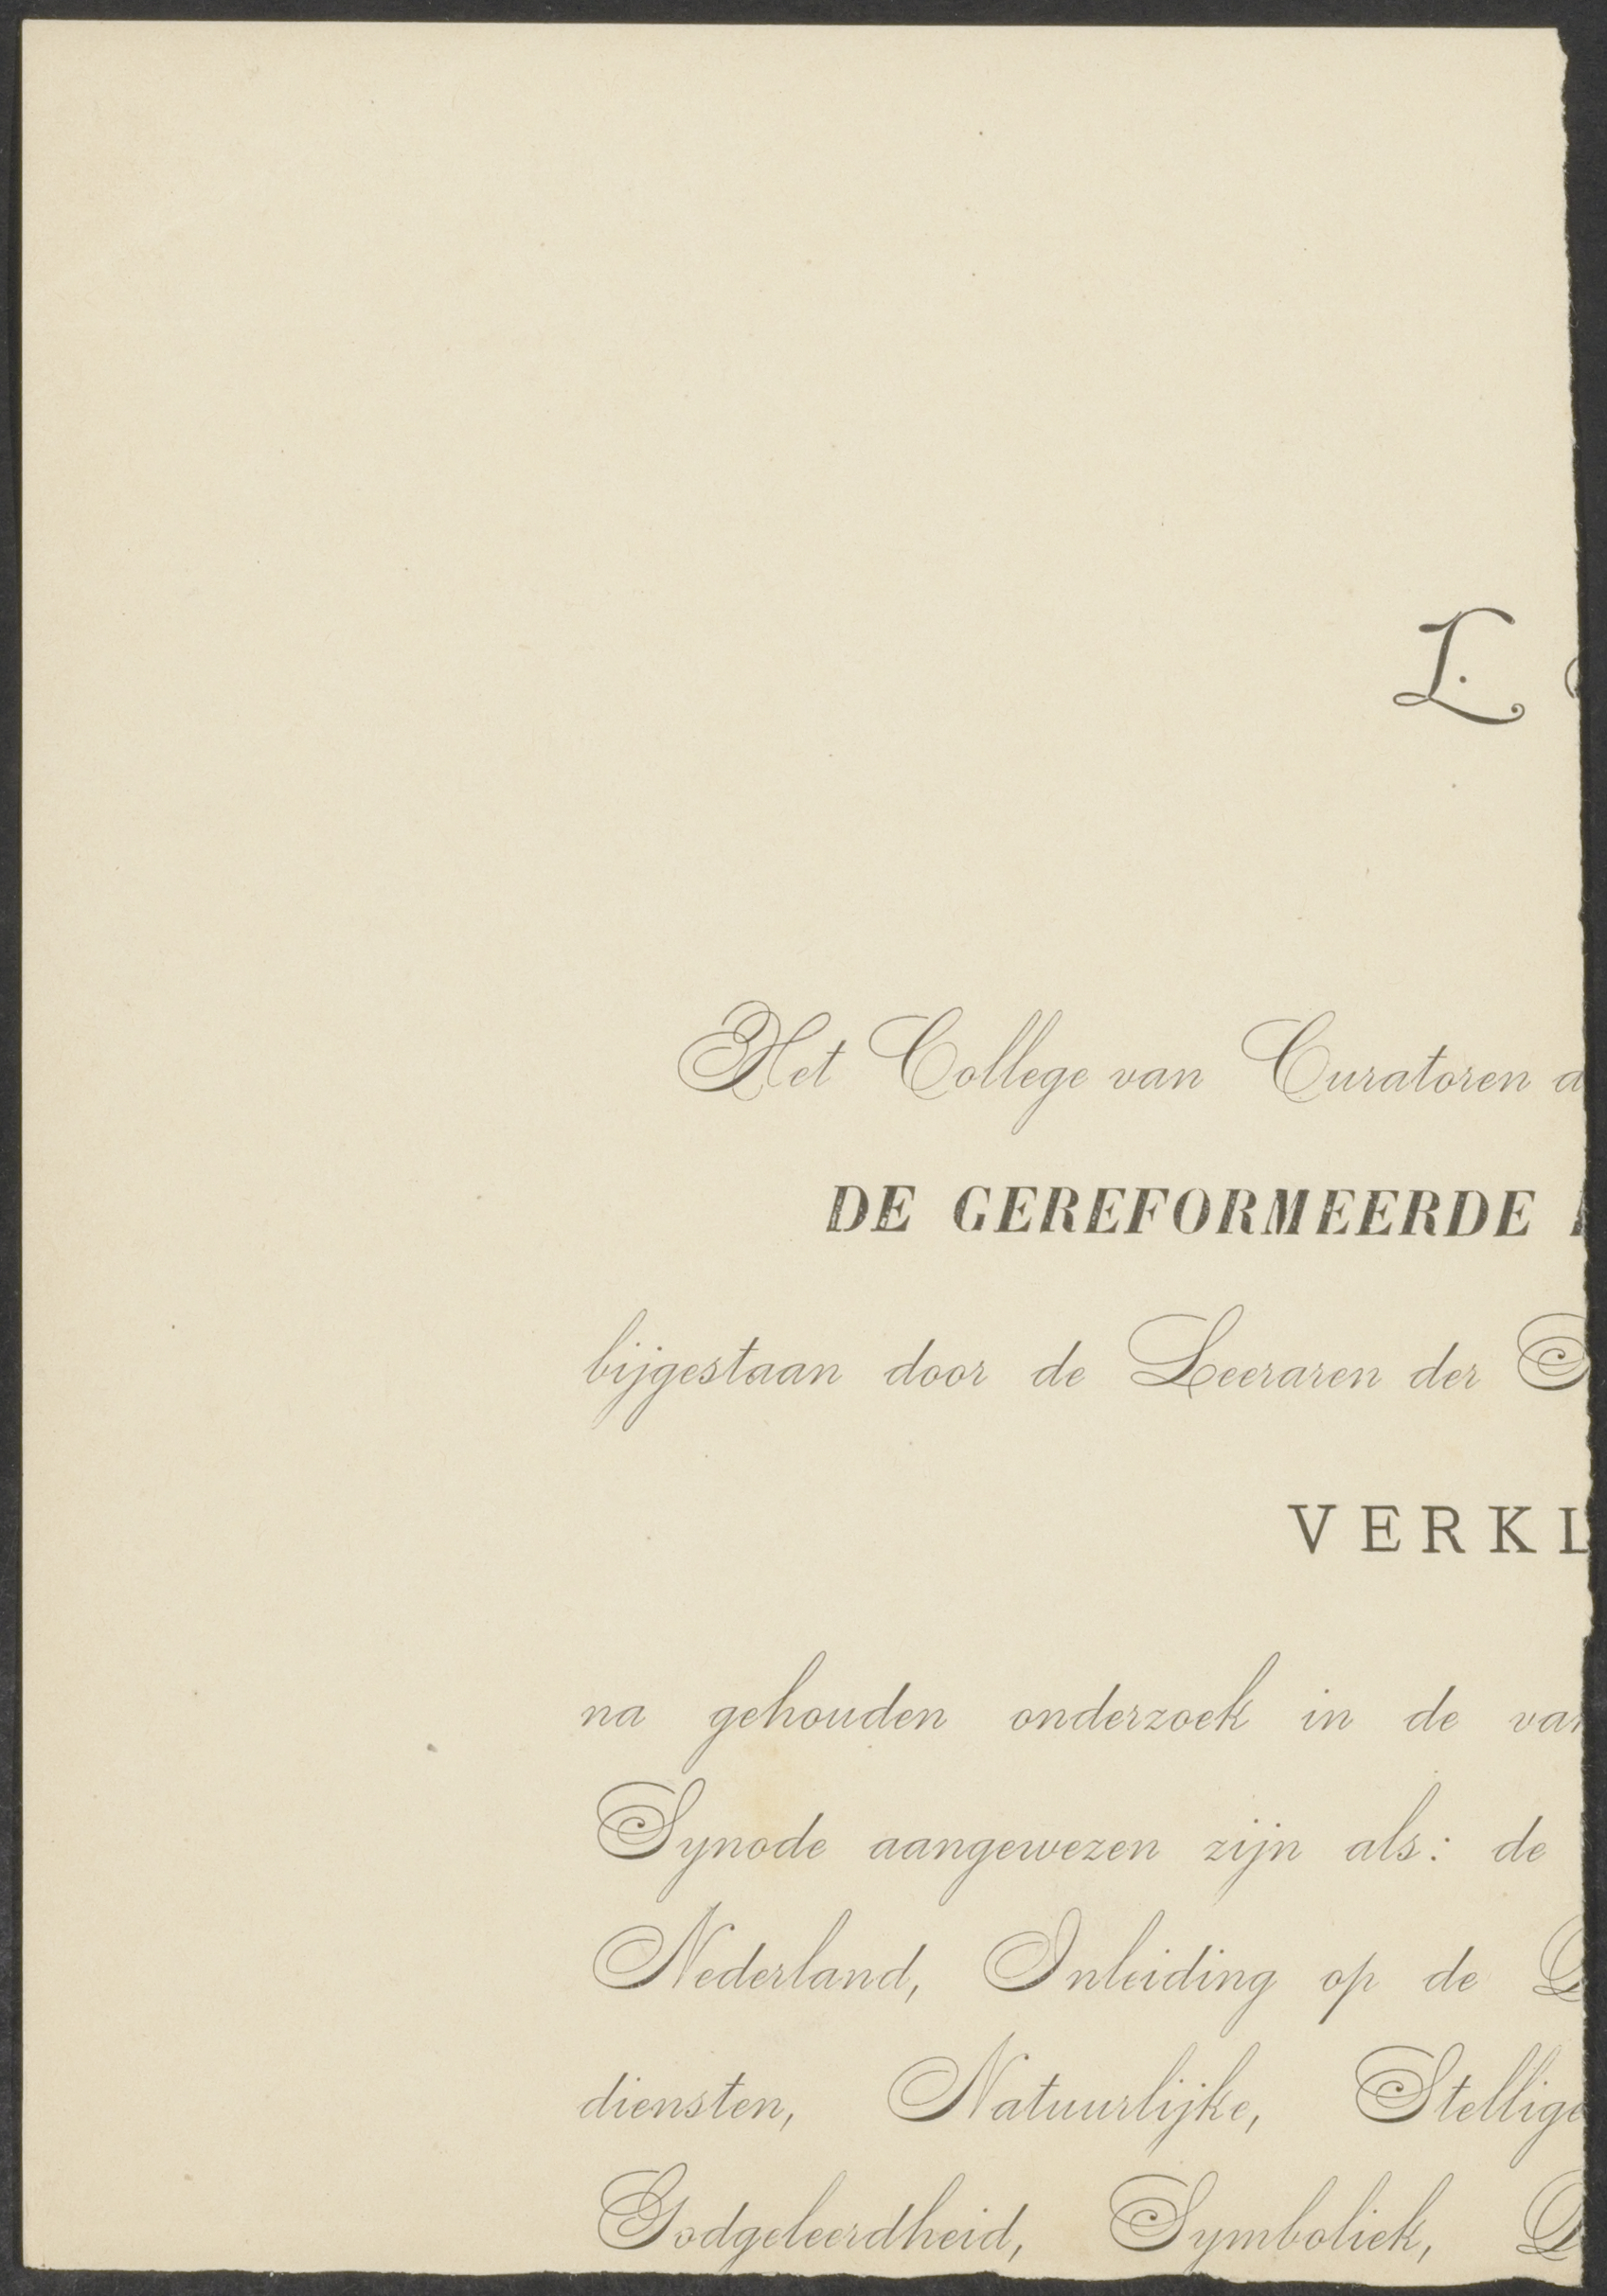 L.
Het College van Curatoren
DE GEREFORMEERDE
bijgestaan door de Leeraren der
VERKL
na gehouden onderzoek in de van
Synode aangewezen zijn als: de
Nederland, Inleiding op de
diensten, Natuurlijke, Stellige
Godgeleerdheid, Symboliek,